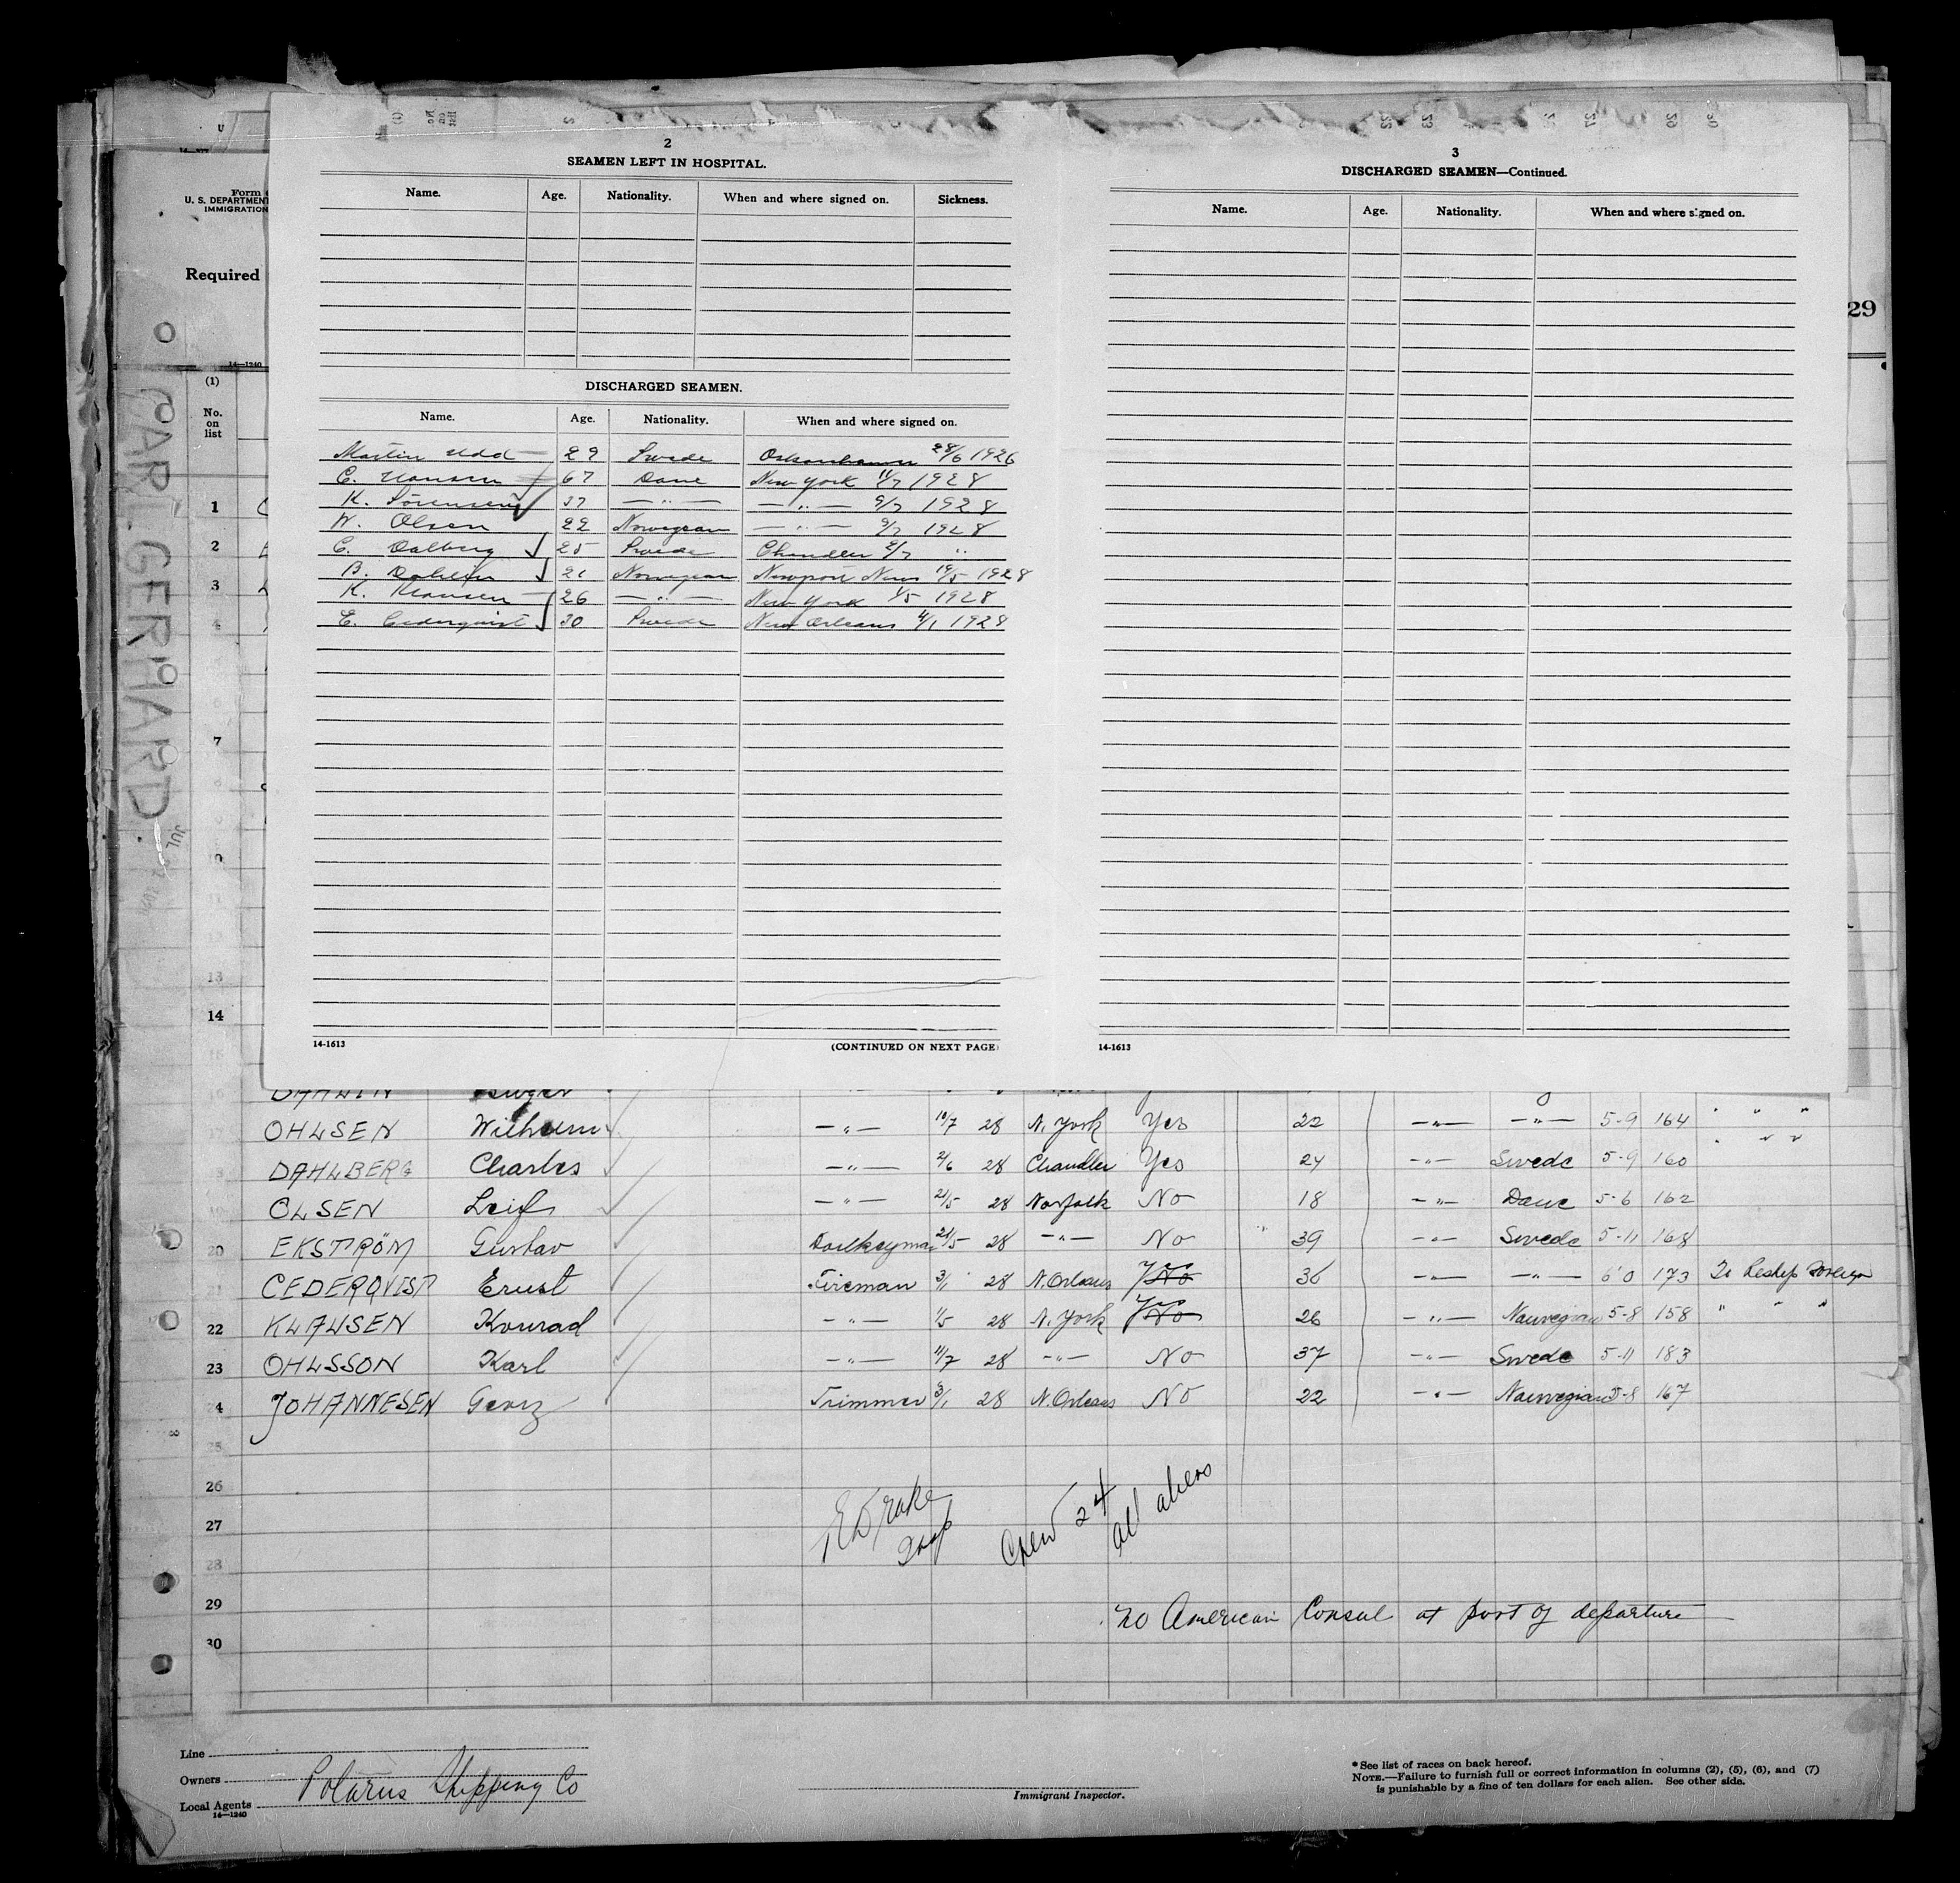 2
SEAMEN LEFT IN HOSPITAL.
Name. Age. Nationality. When and where signed on. Sickness.
DISCHARGED SEAMEN.
Name. Age. Nationality. When and where signed on.
Martin Udd 29 Swede 28/6 1926
C. Hansen 67 Dane New York 11/7 1928
K. Sörensen 37 — " — — " — 9/7 1928
W. Olsen 22 Norwegean — " — 9/7 1928
C. Dalberg 25 Swede Chandler 2/7 "
B. Dahlin 21 Norwegean Newport News 19/5 1928
K. Klausen 26 — " — New York 1/5 1928
E. Cederqvist 30 Swede New Orleans 4/1 1928
14-1613
(CONTINUED ON NEXT PAGE)
3
DISCHARGED SEAMEN—Continued.
Name. Age. Nationality. When and where signed on.
14-1613
U. S. DEPARTMENT
IMMIGRATION
Required
29
14—1240
(1)
No. on list
1
2
3
4
7
13
14
CARL GERHARD.
OHLSEN Wilhelm — " — 10/7 28 N. York Yes 22 — " — — " — 5-9 164 " " "
DAHLBERG Charles — " — 2/6 28 Chandler Yes 24 — " — Swede 5-9 160 " " "
OLSEN Leif — " — 21/5 28 Norfolk No 18 — " — Dane 5-6 162
20 EKSTRØM Gustav Donkeyman 21/5 28 — " — No 39 — " — Swede 5-11 168
21 CEDERQVIST Ernst Fireman 3/1 28 N. Orleans Yes No 30 — " — — " — 6-0 173 To Reship Foreign
22 KLAUSEN Konrad — " — 1/5 28 N. York Yes No 26 — " — Norwegian 5-8 158 " " "
23 OHLSSON Karl — " — 11/7 28 — " — No 37 — " — Swede 5-11 183
4 JOHANNESEN Georg Trimmer 3/1 28 N. Orleans No 22 — " — Norwegian 5-8 167
25
26
27
28
29
30
Drake
Insp
Crew 24
all aliens
No American Consul at port of departure
Line
Owners
Local Agents
Polarus Shipping Co
14—1240
Immigrant Inspector.
* See list of races on back hereof.
NOTE.—Failure to furnish full or correct information in columns (2), (5), (6), and (7)
is punishable by a fine of ten dollars for each alien. See other side.